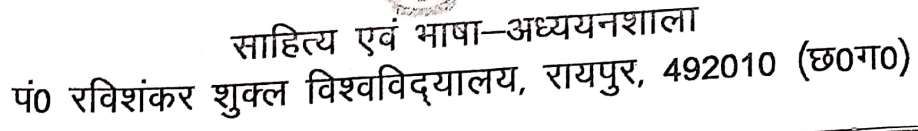 साहित्य एवं भाषा–अध्ययनशाला
पं0 रविशंकर शुक्ल विश्वविद्यालय, रायपुर, 492010 (छ0ग0)